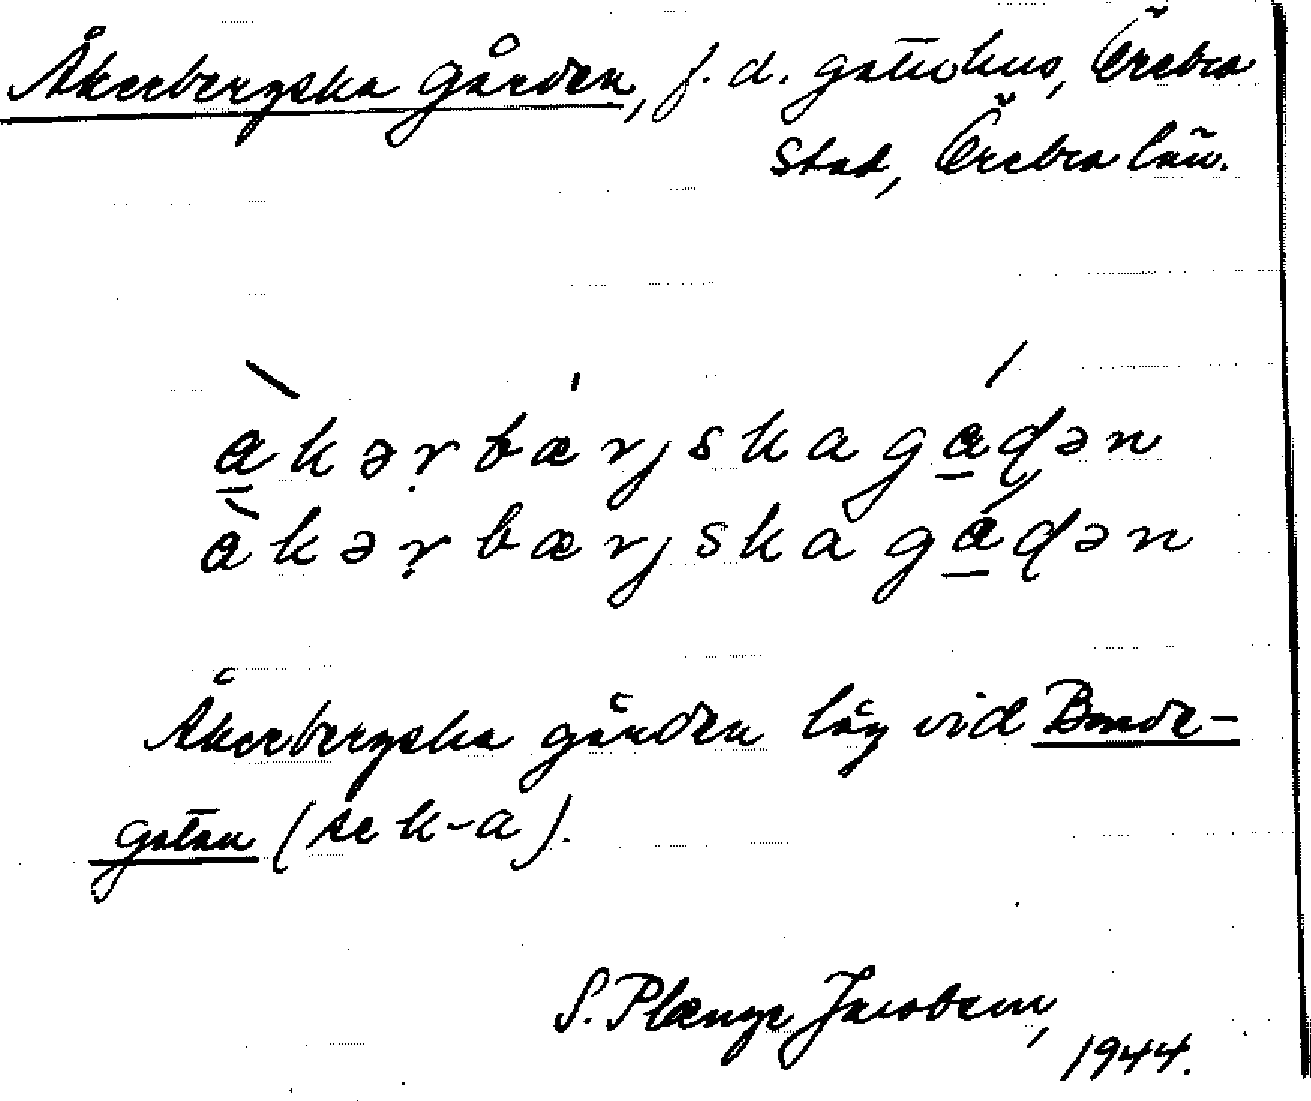 Åkerbergska Gården, f.d. gatuhus, Örebro
stad, Örebro län.
a̲kərbærjskaga̲dən
akərbærjskaga̲dən
Åkerbergska gården låg vid Bonde-
gatan (se k-a).
S. Plænge Jacobson,
1944.